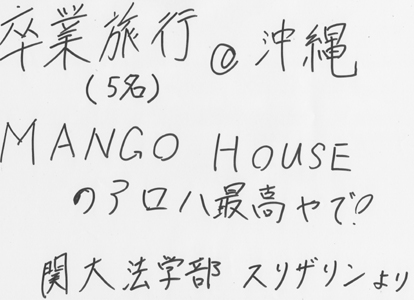 卒業旅行 @ 沖縄
(5名)
MANGO HOUSE
のアロハ最高やで!
関大法学部 スリザリンより